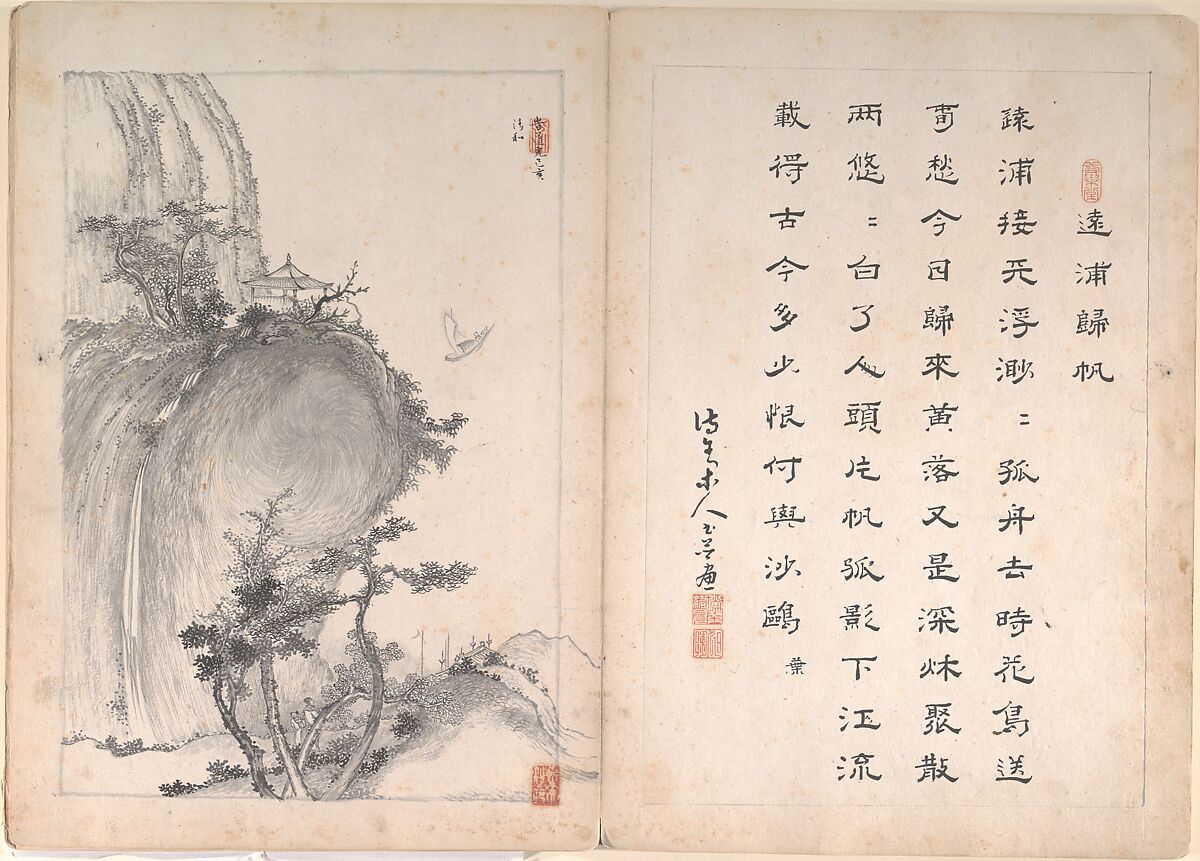 遠浦歸帆
遠浦接天浮渺〻孤舟去時花鳥送
春愁今日歸來黄落又是深秋聚散
两悠〻白了人頭片帆孤影下江流
載得古今多少恨付與沙鷗 葉
人書并畫
道光己亥
清和